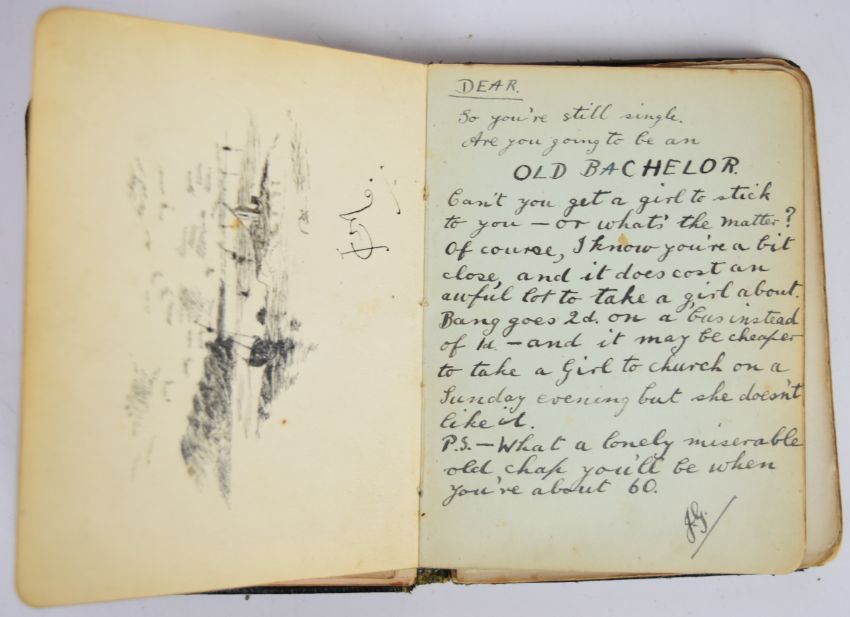 DEAR.
So you're still single.
Are you going to be an
OLD BACHELOR.
Can't you get a girl to stick
to you – or what's the matter?
Of course, I know you're a bit
close, and it does cost an
awful lot to take a girl about.
Bang goes 2d. on a bus instead
of 1d. – and it may be cheaper
to take a Girl to church on a
Sunday evening but she doesn't
like it.
P.S. – What a lonely miserable
old chap you'll be when
you're about 60.
J.G.